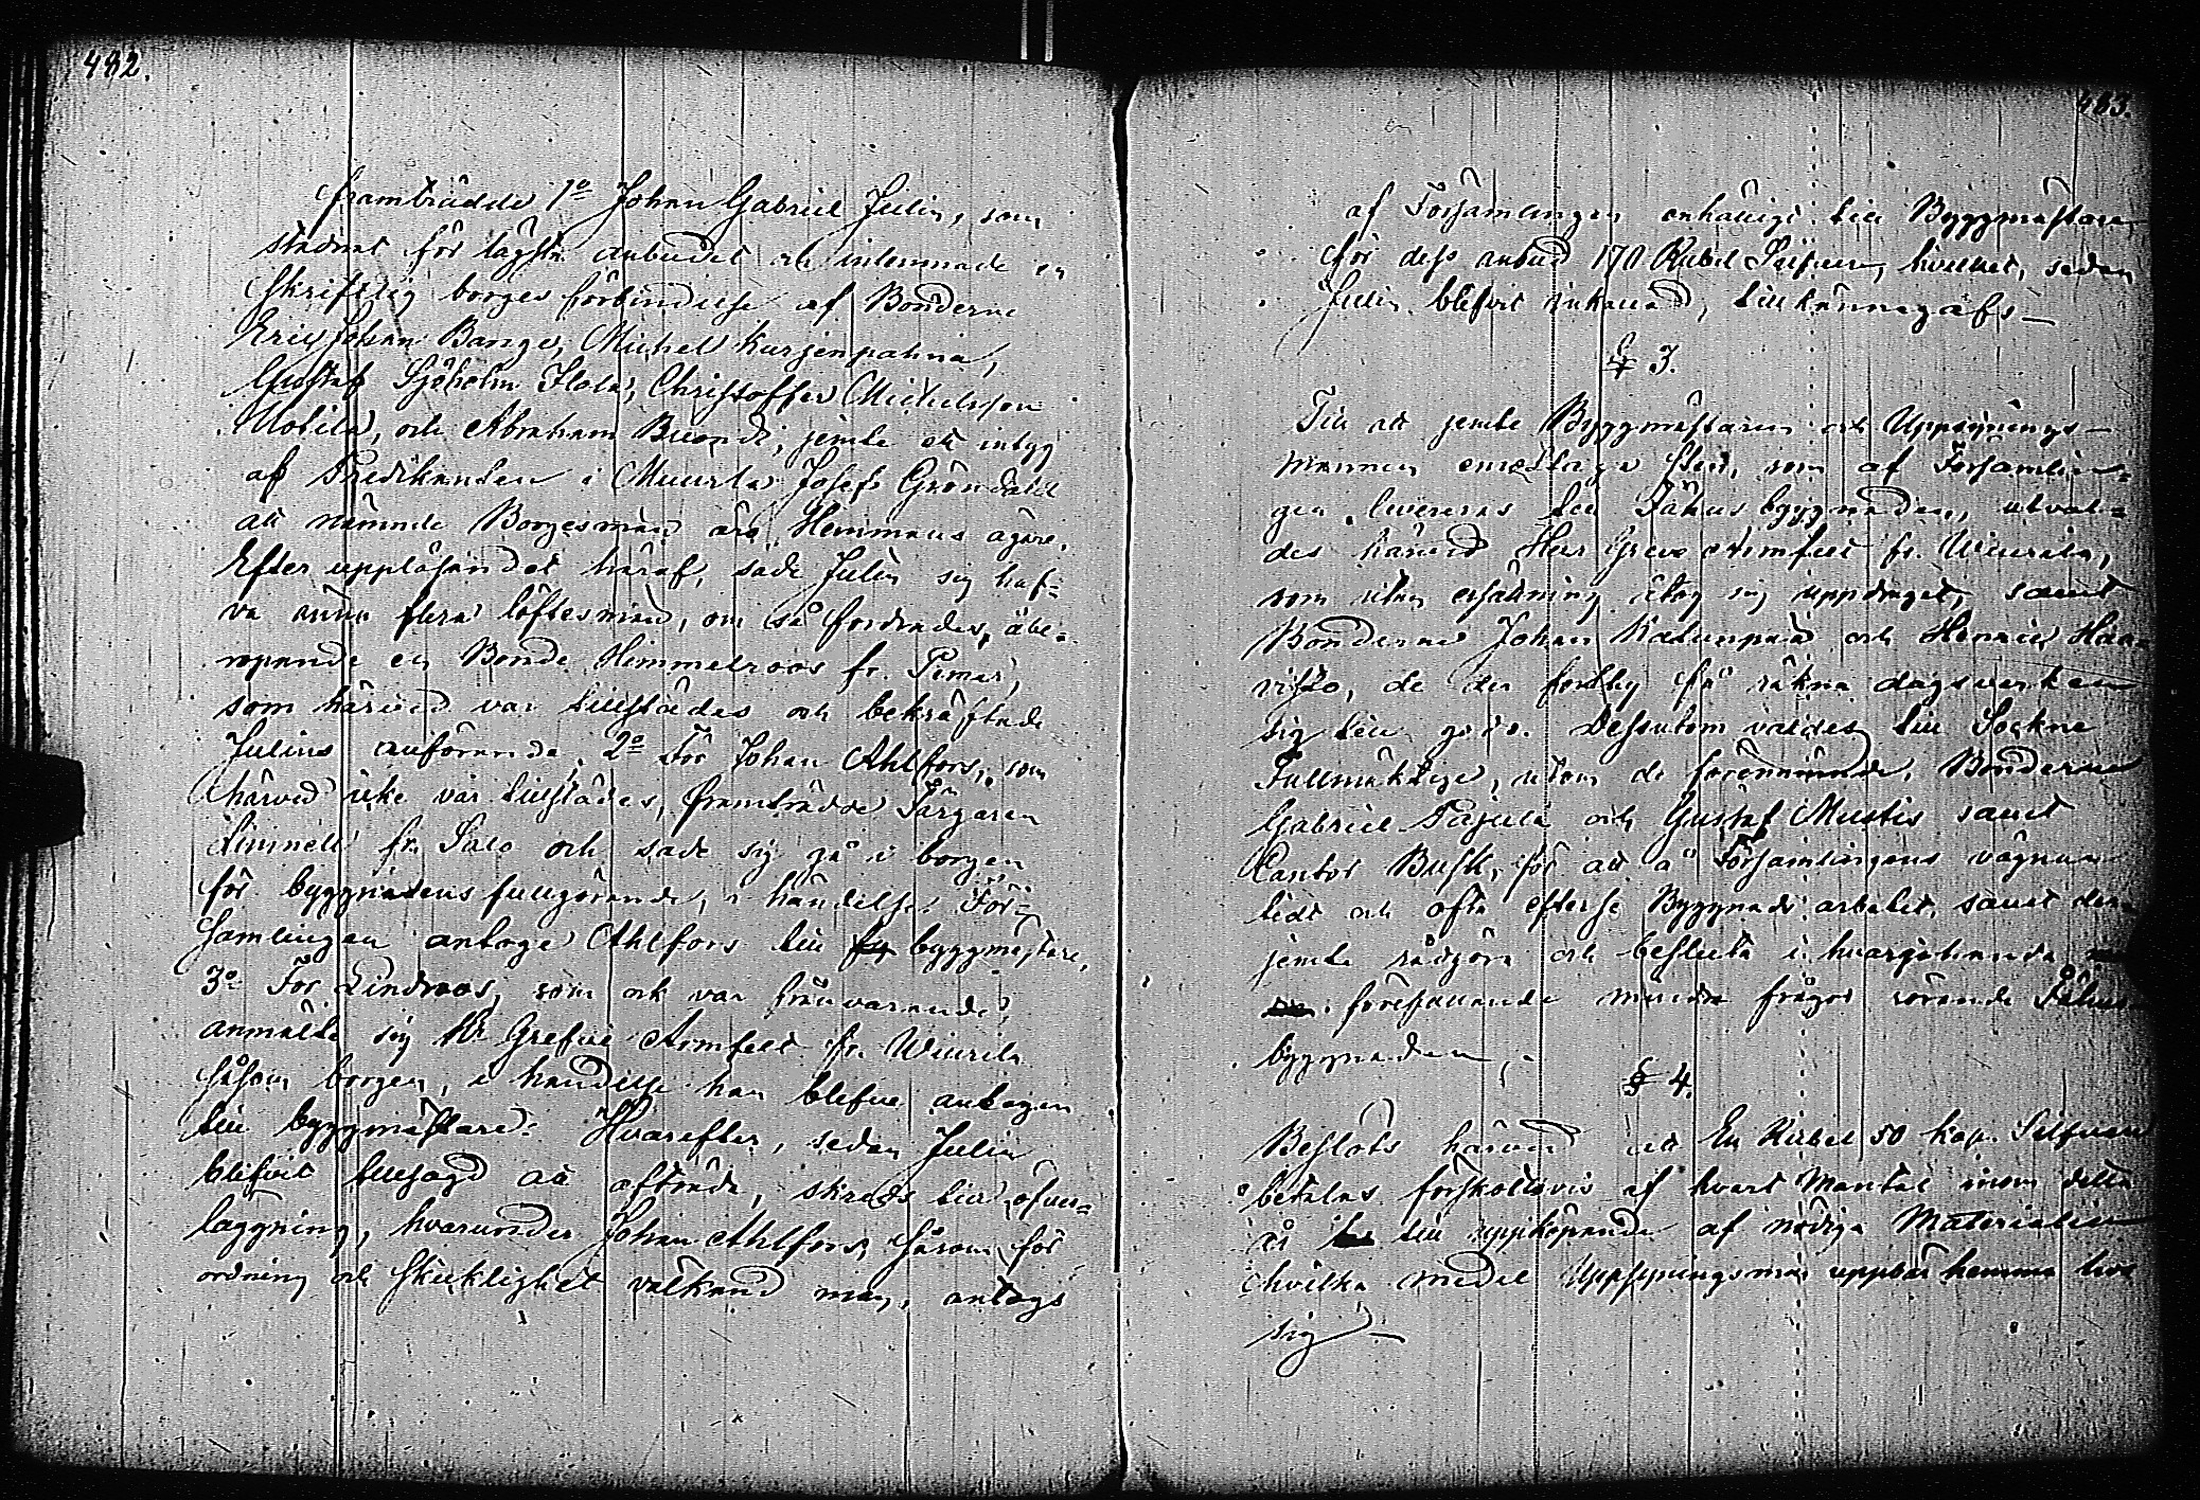 482.
framträdde 1o Johan Gabriel Julin, som
stadnat för lägsta anbudet och inlemnade en
Skriftlig borges förbindelse af Bönderne
Eric Johan Bange, Michel Kurjenpahna,
Gustaf Sjöholm Ilola, Christoffer Michelsson
och Abraham jemte ett intyg
af Predikanten i Muurla Josef Gröndahl
att nämnde Borgesmän äro Hemmans ägare.
Efter uppläsandet häraf, sade Julin sig haf-
va ännu flera löftesmän, om så fordrades, åbe-
ropande en Bonde Himmelroos fr. Pemar,
som härvid var tillstädes och bekräftade
Julins anförande. 2o För Johan Ahlfors, som
härvid icke var tillstädes, framträdde Färgaren
Linnell fr. Salo och sade sig gå i borgen
för byggnadens fullgörande, i händelse För-
samlingen antoge Ahlfors till byggmästare.
3o För Lindroos, som ock var frånvarande,
anmälte sig Hr Grefve Armfelt fr. Wiurila
såsom borgen, i händelse han blefve antagen
till byggmästare. Hvarefter, sedan Julin
blifvit tillsagd att afträda, skreds till öfver-
läggning, hvarunder Johan Ahlfors, såsom för
ordning och skicklighet välkänd man, antogs
483.
af Församlingen enhälligt till Byggmästare
för dess anbud 170 Rubel Silfver, hvilket, sedan
Julin blifvit inkallad, tillkännagafs—
§ 3.
Till att jemte Byggmästaren och Uppsynings-
mannen emottaga sten, som af Församlin-
gen levereras till Fähus byggnaden, utval-
des härvid Herr Greve Armfelt fr. Wiurila,
som utan ersättning åtog sig uppdraget, samt
Bönderne Johan och Henric Haa-
visto, de der få räkna dagsverken
sig till godo. Dessutom valdes till Sockne
Fullmäktige, utom de förenämnde, Bönderne
Gabriel Pajula och Gustaf Mustis samt
Cantor Busk, för att å Församlingens vägnar
tidt och ofta efterse Byggnads arbetet, samt der-
jemte rådgöra och besluta i hvarjehanda
förefallande mindre frågor rörande Fähus
byggnaden.
§ 4.
Beslöts härvid att En Rubel 50 kop. Silfver
betalas förskottsvis af hvart Mantal inom detta
år till uppköpande af nödiga Materialier
hvilka medel Uppsyningsmän uppbär hemma hos
sig—